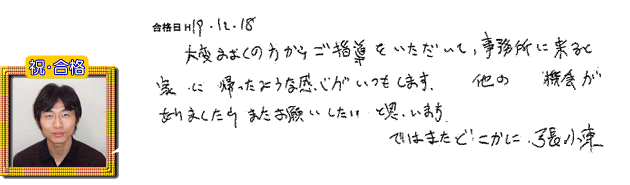 合格日 H19.12.18
大変多くの方からご指導をいただいて、事務所に来ると
家に帰ったような感じがいつもします。他の機会が
ありましたらまたお願いしたいと思います。
ではまたどこかに、張小凍
祝・合格